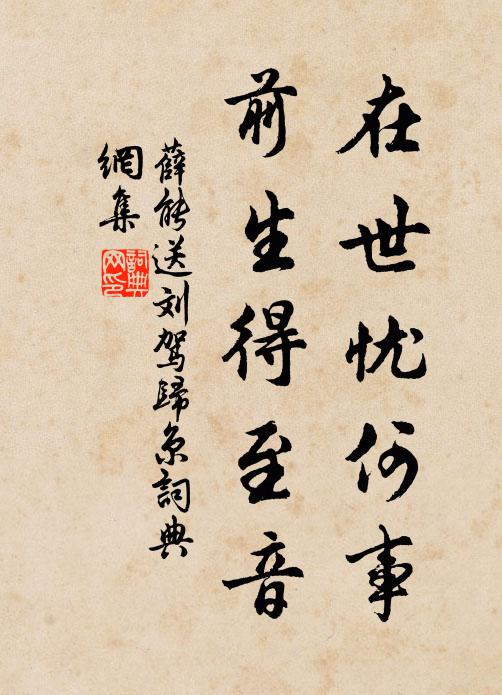 在世忧何事
前生得至音
薛能送刘驾歸京詞典
網集
詞典网印